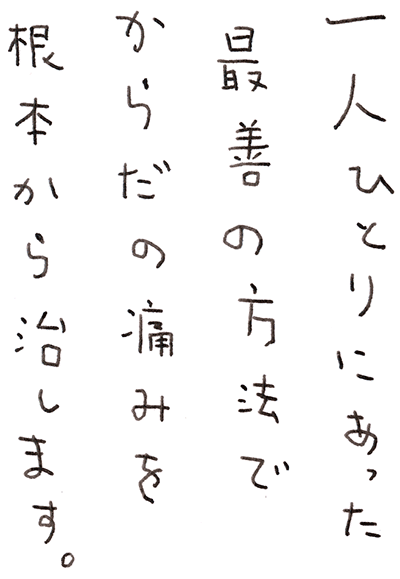 一人ひとりにあった
最善の方法で
からだの痛みを
根本から治します。